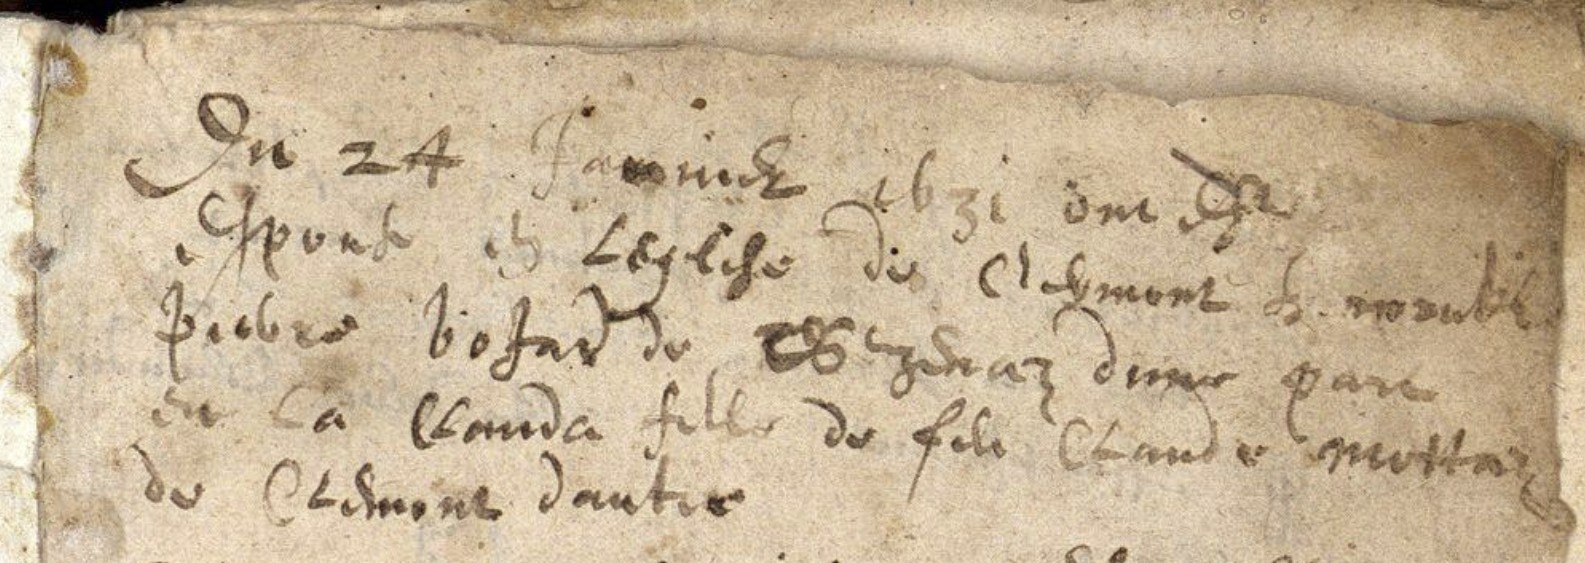 Du 24 Januier 1631 ont este
Espousé en Leglise de Clermont h. noutble
pierre bosard de dune part
et La Clauda fille de feu Claude mottaz
de Clermont dautre